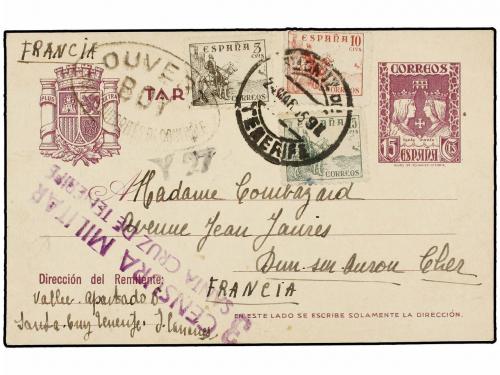 FRANCIA
OUVE
BOT
TAR
PLUS ULTRA
ESPAÑA
3
CTS
CORREOS
ESPAÑA
10
CTS
CORREOS
5
CORREOS
TENERIFE
CORREOS
15 CTS
ESPAÑA
Madame Combazard
Avenue Jean Jaurès
Dun-sur-Auron Cher
FRANCIA
3 CENSURA MILITAR
SANTA CRUZ DE TENERIFE
Dirección del Remitente:
Valle. Apartado
Santa Cruz Tenerife I. Canarias
EN ESTE LADO SE ESCRIBE SOLAMENTE LA DIRECCIÓN.